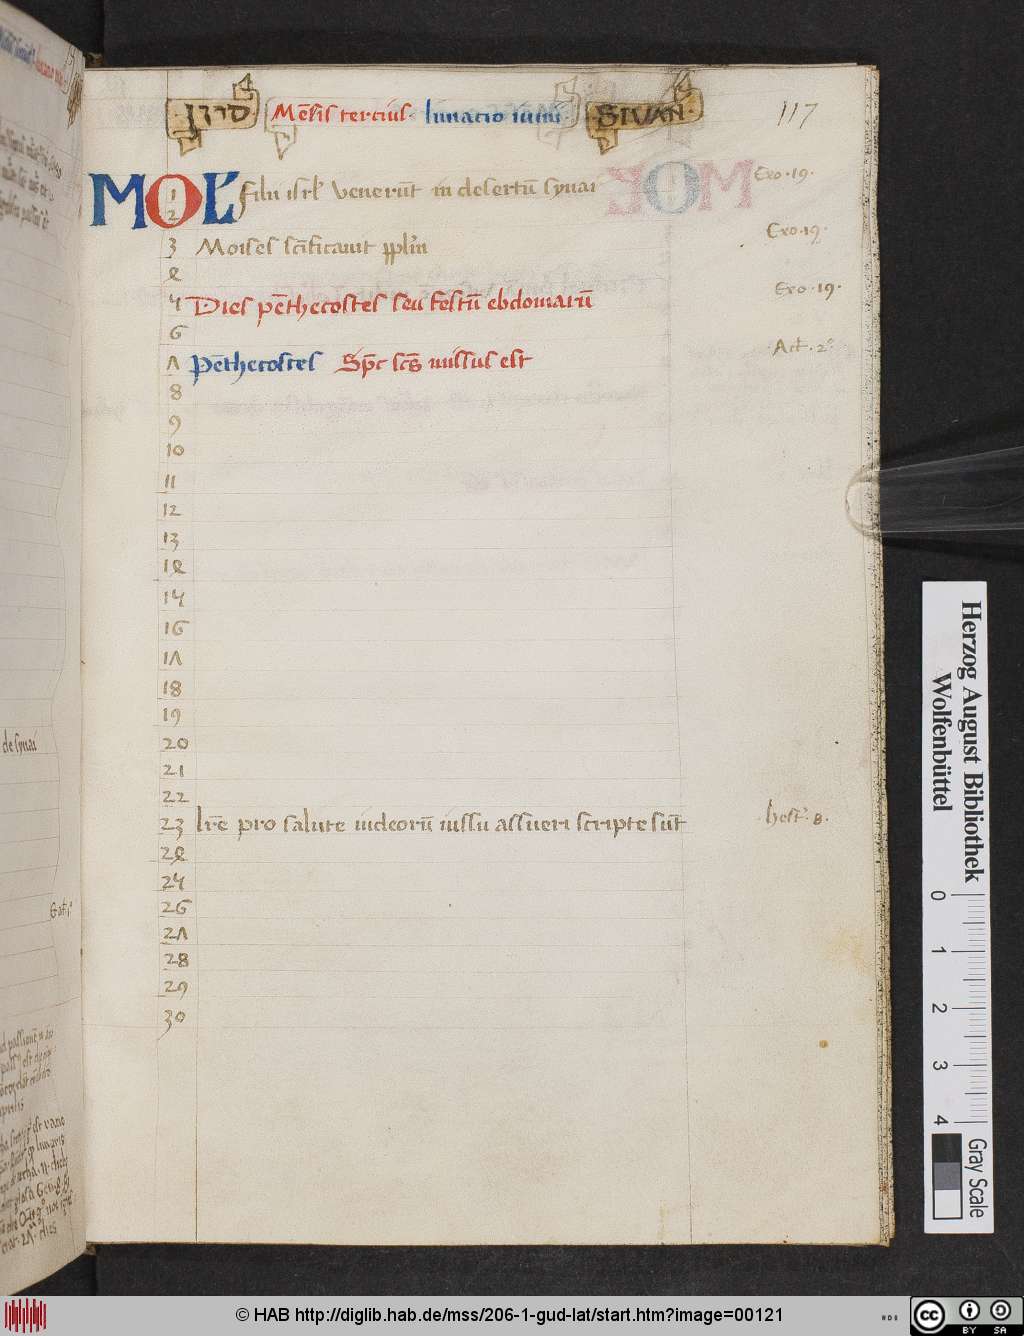 סיון Mēsis tercius · lunacio iunii · SIVAN · 117
MOL̄ 1 filii isrl̄ venerūt in desertū synai Exo · 19 ·
2
3 Moises scīficauit pplm̄ Exo · 19 ·
4
5 Dies pēthecostes seu festū ebdomarū Exo · 19 ·
6
7 Pēthecostes Spc̄ scs̄ missus est Act · 2°
8
9
10
11
12
13
14
15
16
17
18
19
20
21
22
23 lrē pro salute iudeorū iussu assueri scripte sūt hest · 8 ·
24
25
26
27
28
29
30
de synai
Herzog August Bibliothek
Wolfenbüttel
0 1 2 3 4
Gray Scale
© HAB http://diglib.hab.de/mss/206-1-gud-lat/start.htm?image=00121
cc BY SA